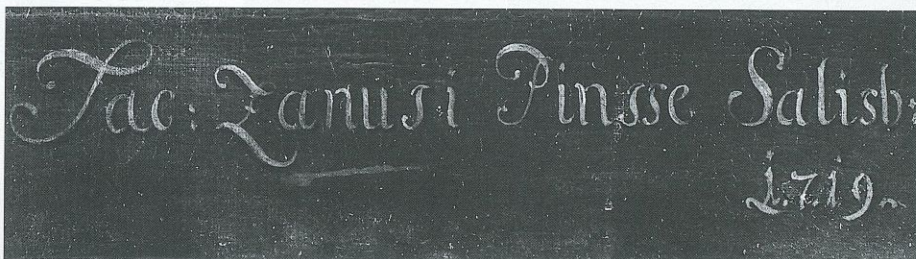 Jac: Zanusi Pinsse Salisb:
1.7.19.